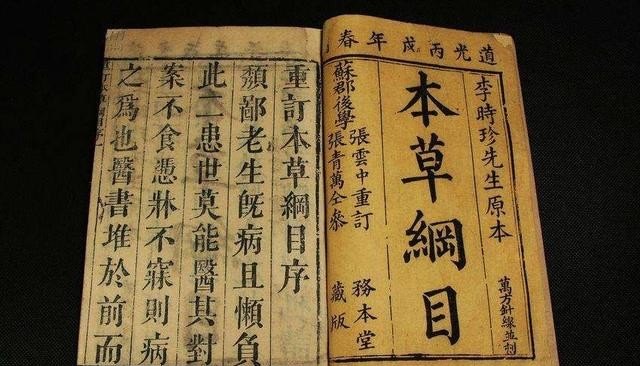 道光丙戌年春
李時珍先生原本
萬方針線並刻
本草綱目
蘇郡後學
張雲中重訂
張青萬仝參
務本堂
藏版
重訂本草綱目序
頽鄙老生旣病且懶負
此二患世莫能醫其對
案不食慿牀不寐則病
之爲也醫書堆於前而